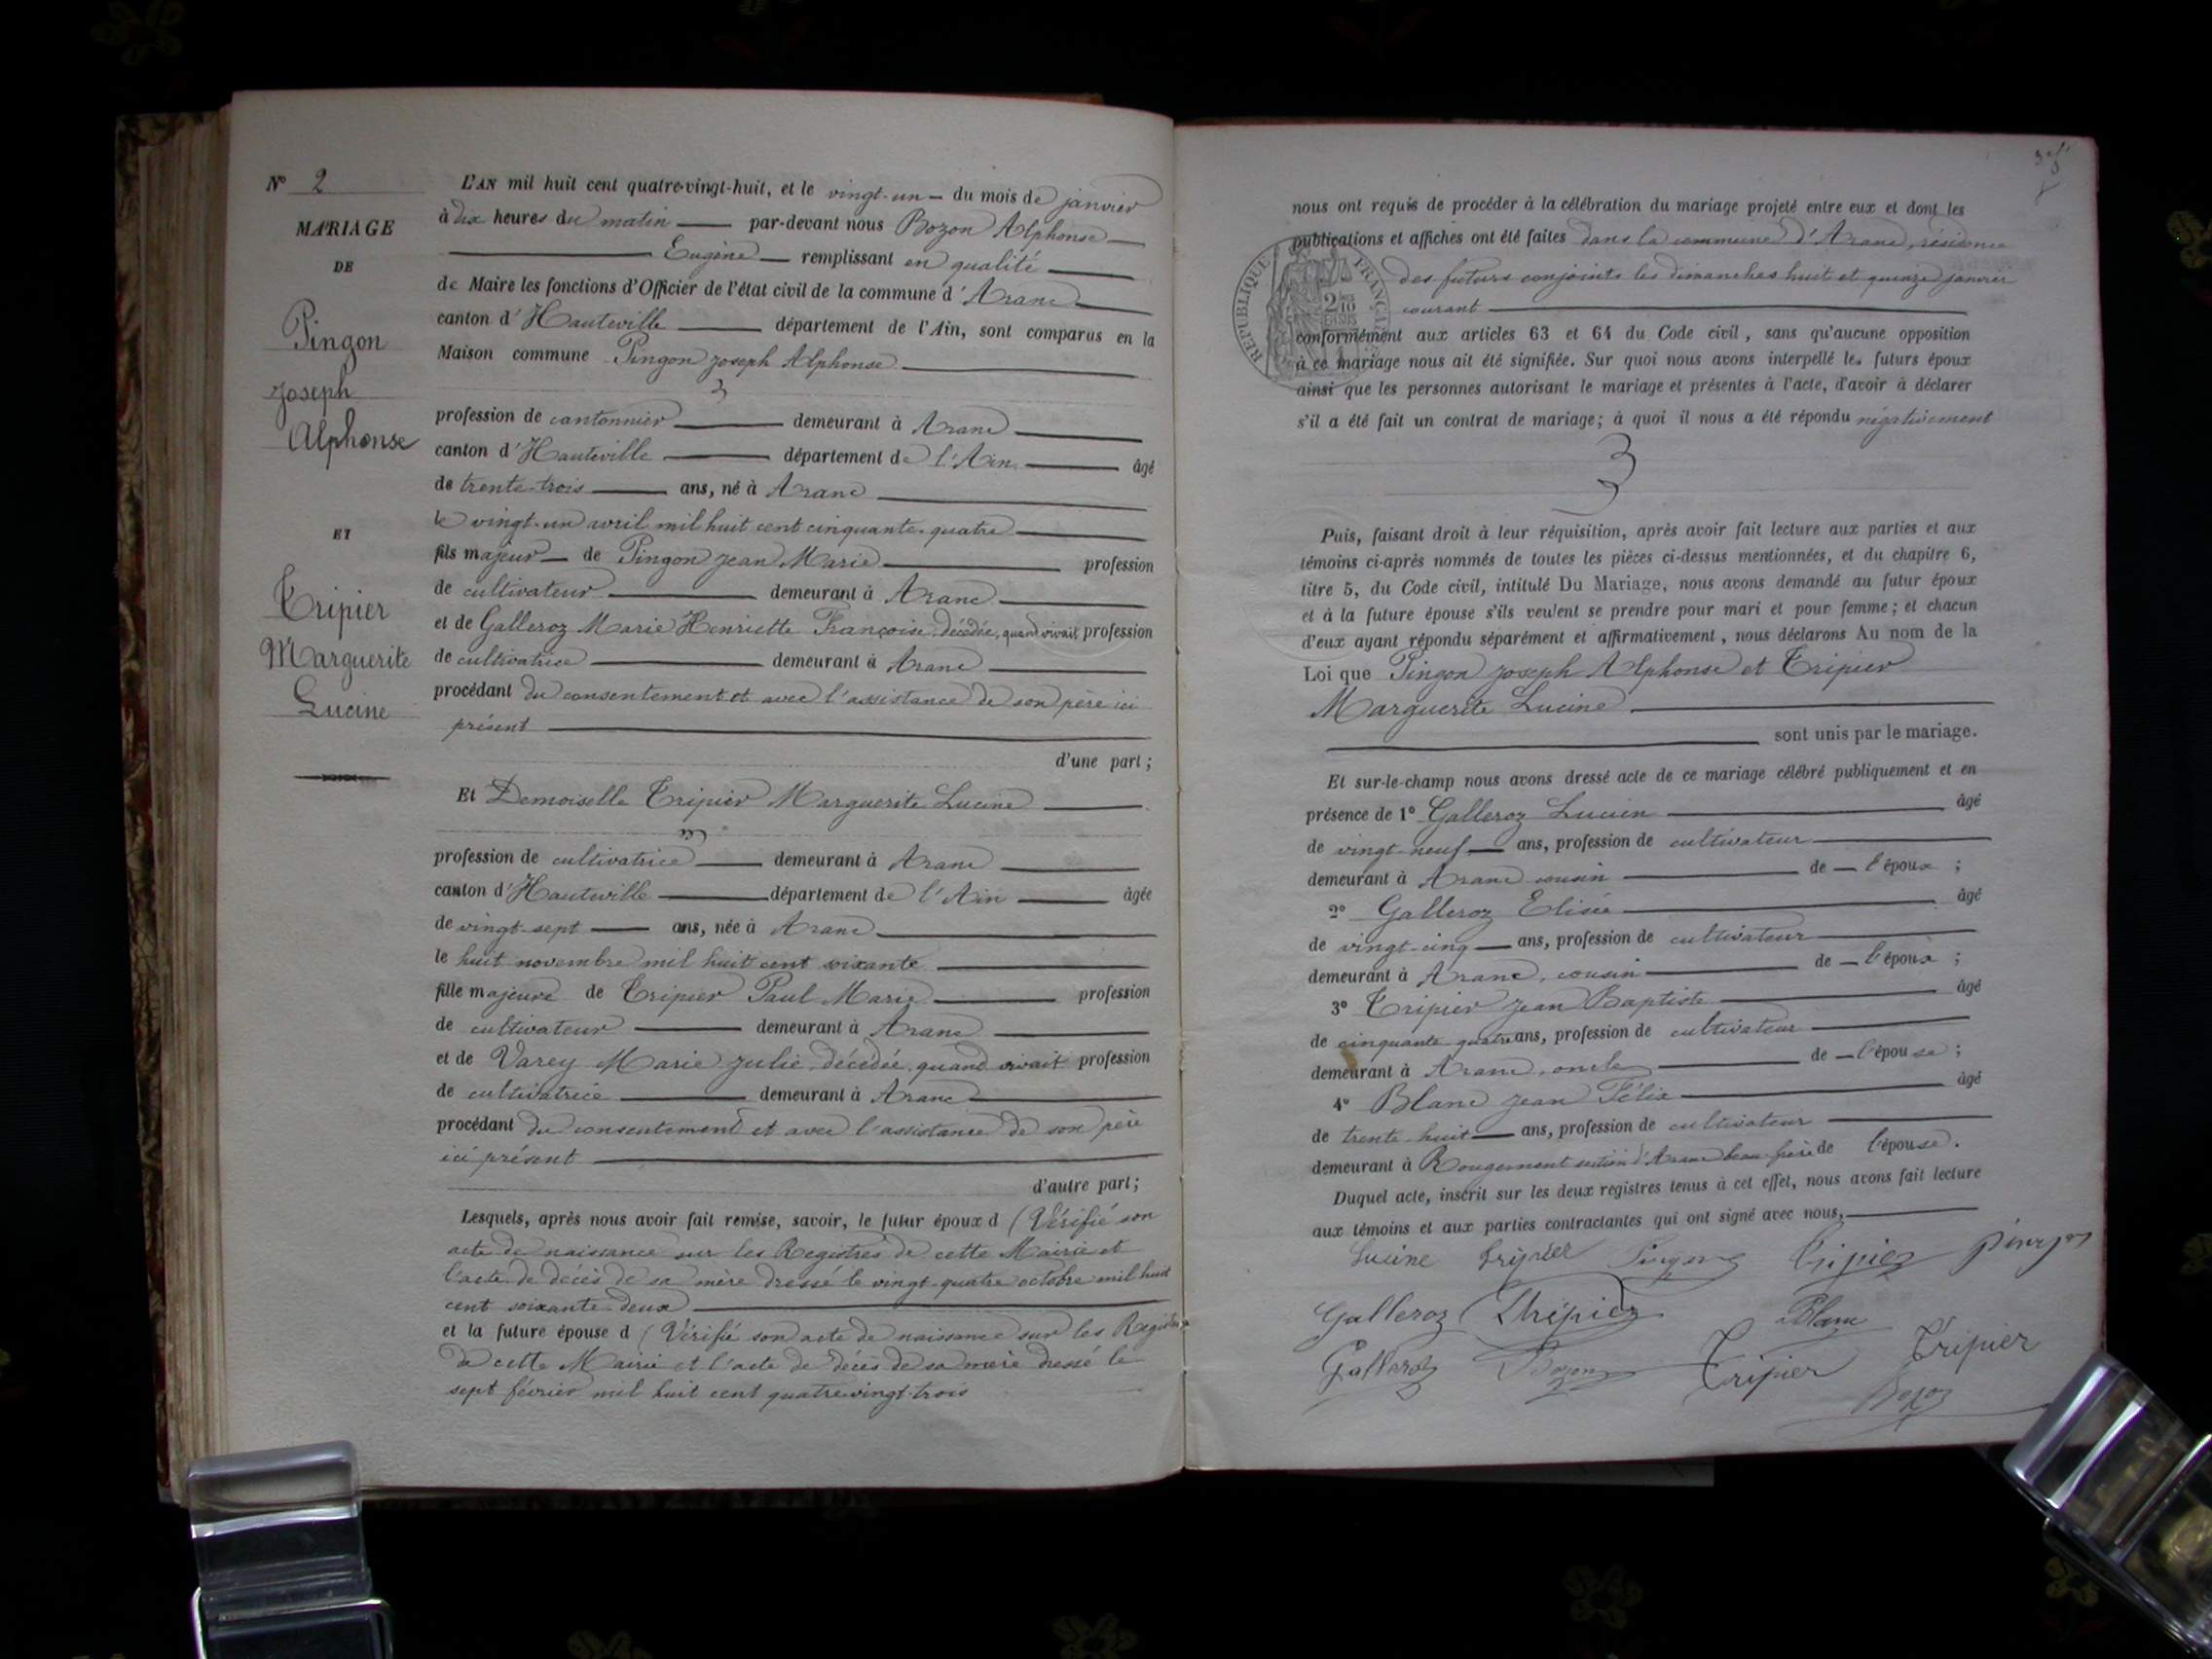 N° 2
MARIAGE
DE
Pingon
Joseph
Alphonse
ET
Tripier
Marguerite
Lucine
L'AN mil huit cent quatre-vingt-huit, et le vingt-un du mois de janvier
à dix heures du matin par-devant nous Bozon Alphonse
Eugène remplissant en qualité
de Maire les fonctions d'Officier de l'état civil de la commune d'Aranc
canton d'Hauteville département de l'Ain, sont comparus en la
Maison commune Pingon Joseph Alphonse
profession de cantonnier demeurant à Aranc
canton d'Hauteville département de l'Ain âgé
de trente-trois ans, né à Aranc
le vingt-un avril mil huit cent cinquante-quatre
fils majeur de Pingon Jean Marie profession
de cultivateur demeurant à Aranc
et de Galleroz Marie Henriette Françoise, décédée, quand vivait, profession
de cultivatrice demeurant à Aranc
procédant du consentement et avec l'assistance de son père ici
présent
d'une part ;
Et Demoiselle Tripier Marguerite Lucine
profession de cultivatrice demeurant à Aranc
canton d'Hauteville département de l'Ain âgée
de vingt-sept ans, née à Aranc
le huit novembre mil huit cent soixante
fille majeure de Tripier Paul Marie profession
de cultivateur demeurant à Aranc
et de Varey Marie Julie, décédée, quand vivait profession
de cultivatrice demeurant à Aranc
procédant du consentement et avec l'assistance de son père
ici présent
d'autre part;
Lesquels, après nous avoir fait remise, savoir, le futur époux d (Vérifié son
acte de naissance sur les Registres de cette Mairie et
l'acte de décès de sa mère dressé le vingt-quatre octobre mil huit
cent soixante-deux
et la future épouse d (Vérifié son acte de naissance sur les Registres
de cette Mairie et l'acte de décès de sa mère dressé le
sept février mil huit cent quatre-vingt-trois
nous ont requis de procéder à la célébration du mariage projeté entre eux et dont les
publications et affiches ont été faites dans la commune d'Aranc, résidence
des futurs conjoints les dimanches huit et quinze janvier
courant
REPUBLIQUE FRANÇAISE
conformément aux articles 63 et 64 du Code civil, sans qu'aucune opposition
à ce mariage nous ait été signifiée. Sur quoi nous avons interpellé les futurs époux
ainsi que les personnes autorisant le mariage et présentes à l'acte, d'avoir à déclarer
s'il a été fait un contrat de mariage; à quoi il nous a été répondu négativement
Puis, faisant droit à leur réquisition, après avoir fait lecture aux parties et aux
témoins ci-après nommés de toutes les pièces ci-dessus mentionnées, et du chapitre 6,
titre 5, du Code civil, intitulé Du Mariage, nous avons demandé au futur époux
et à la future épouse s'ils veulent se prendre pour mari et pour femme ; et chacun
d'eux ayant répondu séparément et affirmativement, nous déclarons Au nom de la
Loi que Pingon Joseph Alphonse et Tripier
Marguerite Lucine
sont unis par le mariage.
Et sur-le-champ nous avons dressé acte de ce mariage célébré publiquement et en
présence de 1° Galleroz Lucien âgé
de vingt-neuf ans, profession de cultivateur
demeurant à Aranc cousin de l'époux ;
2° Galleroz Elisée âgé
de vingt-cinq ans, profession de cultivateur
demeurant à Aranc, cousin de l'époux ;
3° Tripier Jean Baptiste âgé
de cinquante-quatre ans, profession de cultivateur
demeurant à Aranc, oncle de l'épouse ;
4° Blanc Jean Félix âgé
de trente-huit ans, profession de cultivateur
demeurant à Rougemont section d'Aranc beau-frère de l'épouse.
Duquel acte, inscrit sur les deux registres tenus à cet effet, nous avons fait lecture
aux témoins et aux parties contractantes qui ont signé avec nous,
Lucine Tripier Pingon Tripier pingon
Galleroz Thripier Blanc
Galleroz Bozon Tripier Tripier
Bozon